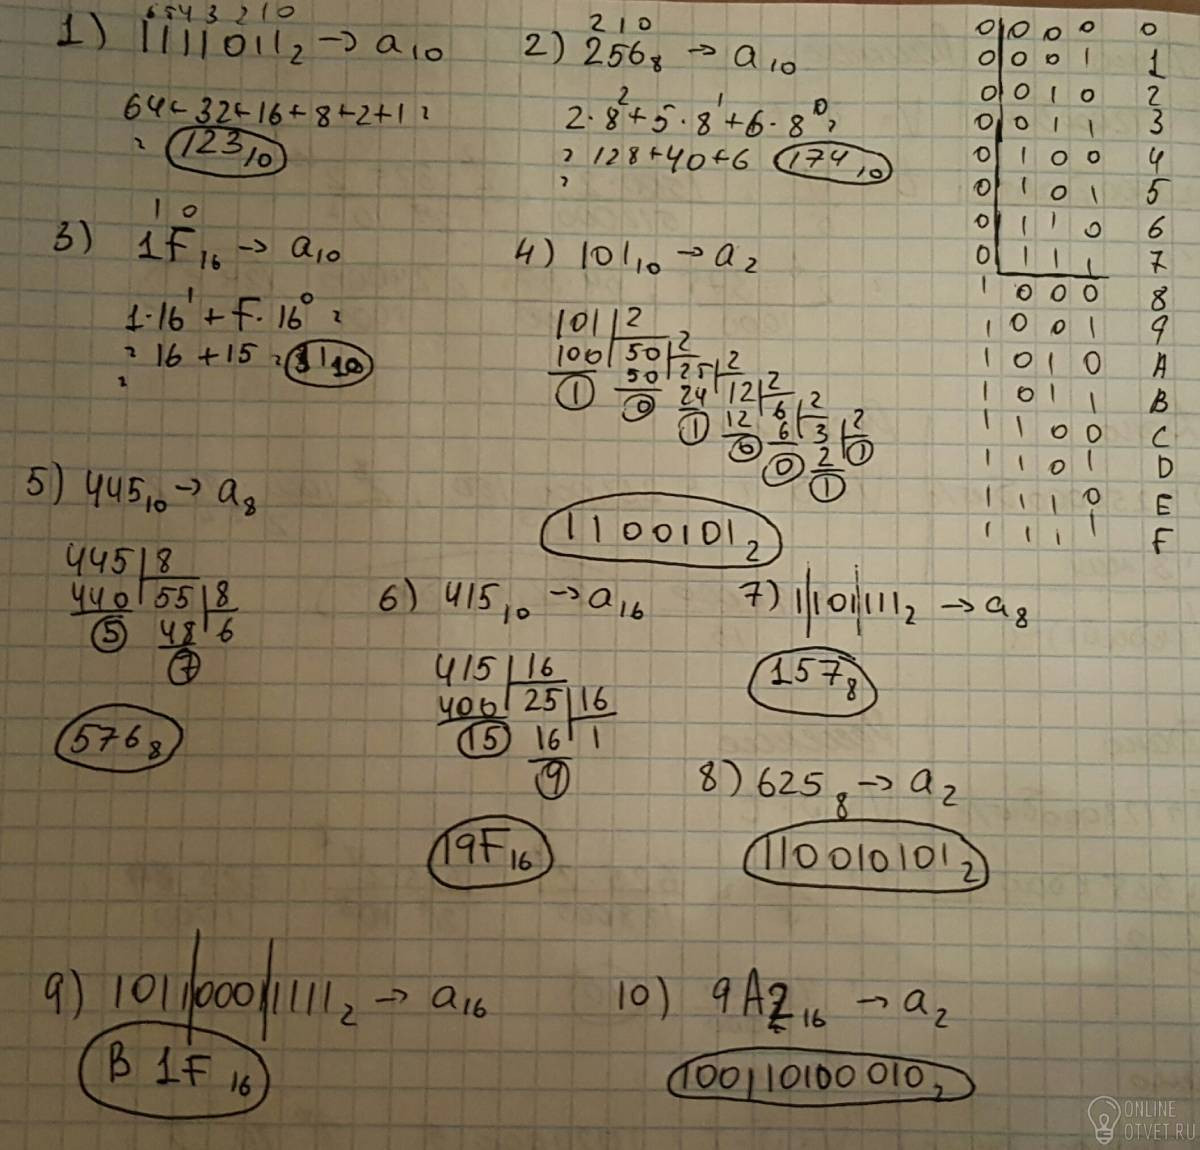 6 5 4 3 2 1 0
1) 1111011₂ → a₁₀
64 + 32 + 16 + 8 + 2 + 1 =
= 123₁₀
2 1 0
2) 256₈ → a₁₀
2·8² + 5·8¹ + 6·8⁰ =
= 128 + 40 + 6 174₁₀
=
1 0
3) 1F₁₆ → a₁₀
1·16¹ + F·16⁰ =
= 16 + 15 = 31₁₀
=
4) 101₁₀ → a₂
101 2
100 50 2
1 50 25 2
0 24 12 2
1 12 6 2
0 6 3 2
0 2 1
1
1100101₂
5) 445₁₀ → a₈
445 8
440 55 8
5 48 6
7
576₈
6) 415₁₀ → a₁₆
415 16
400 25 16
15 16 1
9
19F₁₆
7) 1|101|111₂ → a₈
157₈
8) 625₈ → a₂
110010101₂
9) 1011|0001|1111₂ → a₁₆
B1F₁₆
10) 9A2₁₆ → a₂
100110100010₂
0 0 0 0 0
0 0 0 1 1
0 0 1 0 2
0 0 1 1 3
0 1 0 0 4
0 1 0 1 5
0 1 1 0 6
0 1 1 1 7
1 0 0 0 8
1 0 0 1 9
1 0 1 0 A
1 0 1 1 B
1 1 0 0 C
1 1 0 1 D
1 1 1 0 E
1 1 1 1 F
ONLINE
OTVET.RU